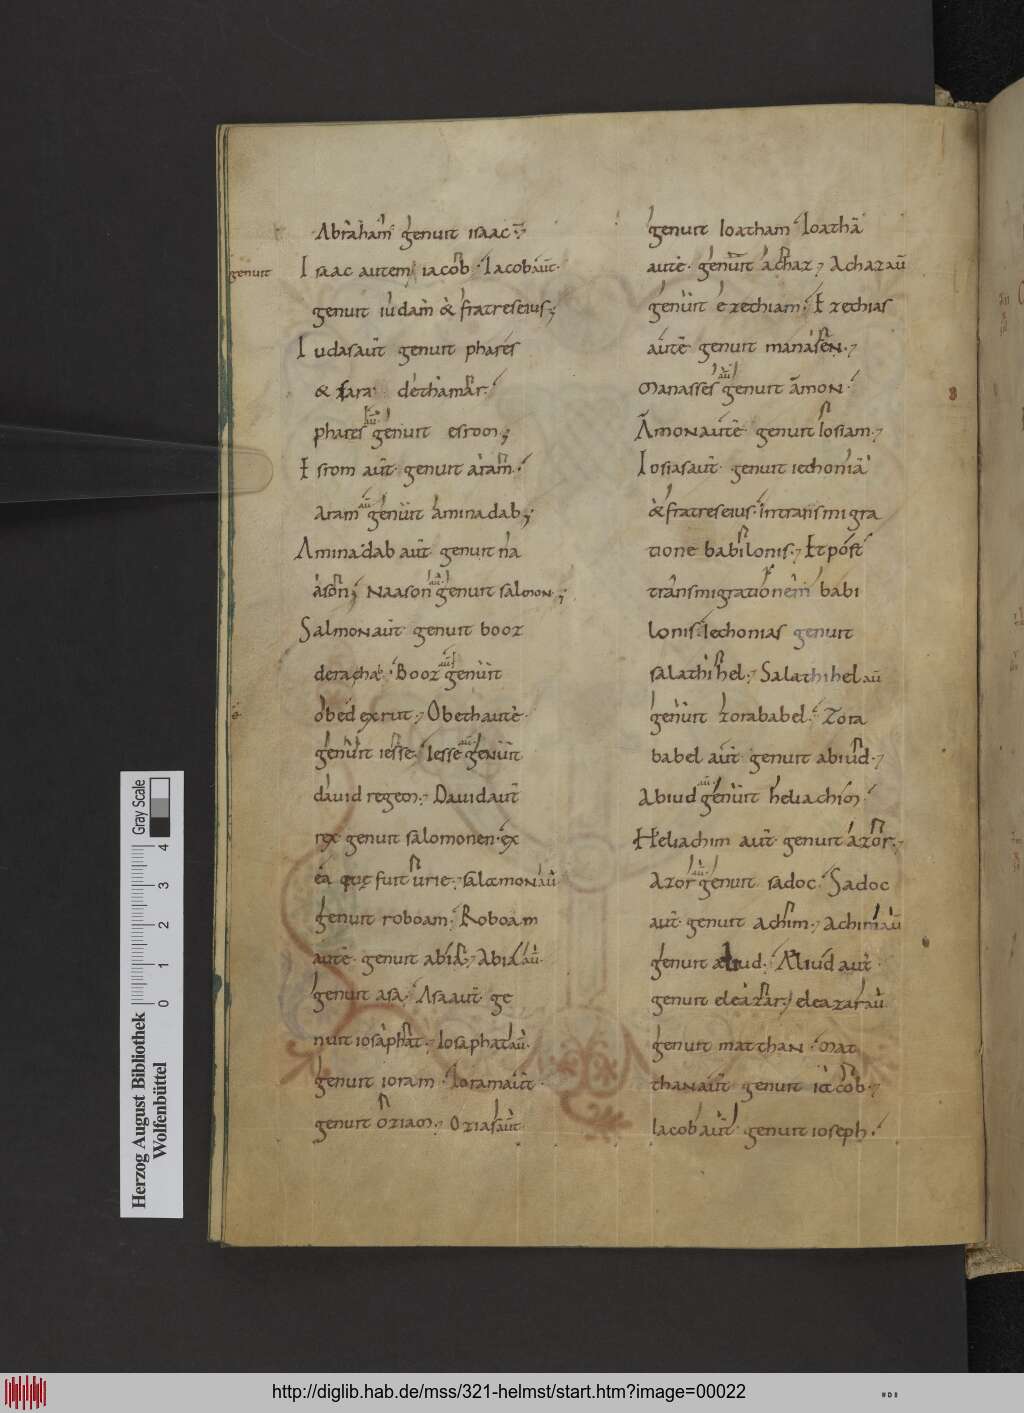 Abraham genuit isaac
genuit
Isaac autem iacob. Iacob aut̄.
genuit iudam & fratreseius;
Iudasaut̄ genuit phares
& zara. dethamar.
phares aū genuit esrom;
Esrom aut̄. genuit aram.
Aram aū genuit aminadab;
Aminadab aut̄ genuit na
ason; Naason aū genuit salmon.;
Salmonaut̄ genuit booz
derachab. Booz aū genuit
obed exrut.; Obethautē
genuit iesse. Iesse aū genuit
dauid regem.; Dauidaut̄
rex genuit salomonen. ex
ea quę fuit urie.; salomon aū
genuit roboam; Roboam
autē. genuit abia; Abia aū.
genuit asa. Asaaut̄ ge
nuit iosaphat.; Iosaphat aū.
genuit ioram. Ioramaut̄.
genuit oziam.; Ozias aut̄
genuit Ioatham. Ioathā
autē. genuit achaz; Achaz aū
genuit ezechiam. Ezechias
autē genuit manasen.;
Manasses aū genuit amon.
Amonautē genuit Iosiam.;
Iosiasaut̄ genuit iechoniā
& fratreseius. intransmigra
tione babilonis.; Etpost
transmigrationem babi
lonis. Iechonias genuit
salathihel.; Salathihel aū
genuit zorababel. Zora
babel aut̄ genuit abiud.;
Abiud aū genuit heliachim.
Heliachim aut̄ genuit azor.;
Azor aū genuit sadoc. Sadoc
aut̄. genuit achim.; Achim aū
genuit eliud. Eliud aut̄.
genuit eleazar.; eleazar aū
genuit matthan. Mat
thanaut̄ genuit iacob.;
Iacob aut̄ genuit ioseph.
Herzog August Bibliothek
Wolfenbüttel
0 1 2 3 4
Gray Scale
http://diglib.hab.de/mss/321-helmst/start.htm?image=00022